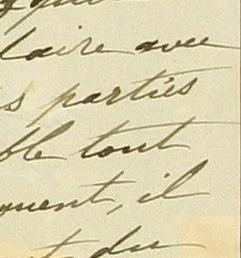 laire avec
s parties
ble tout
quent, il
t du